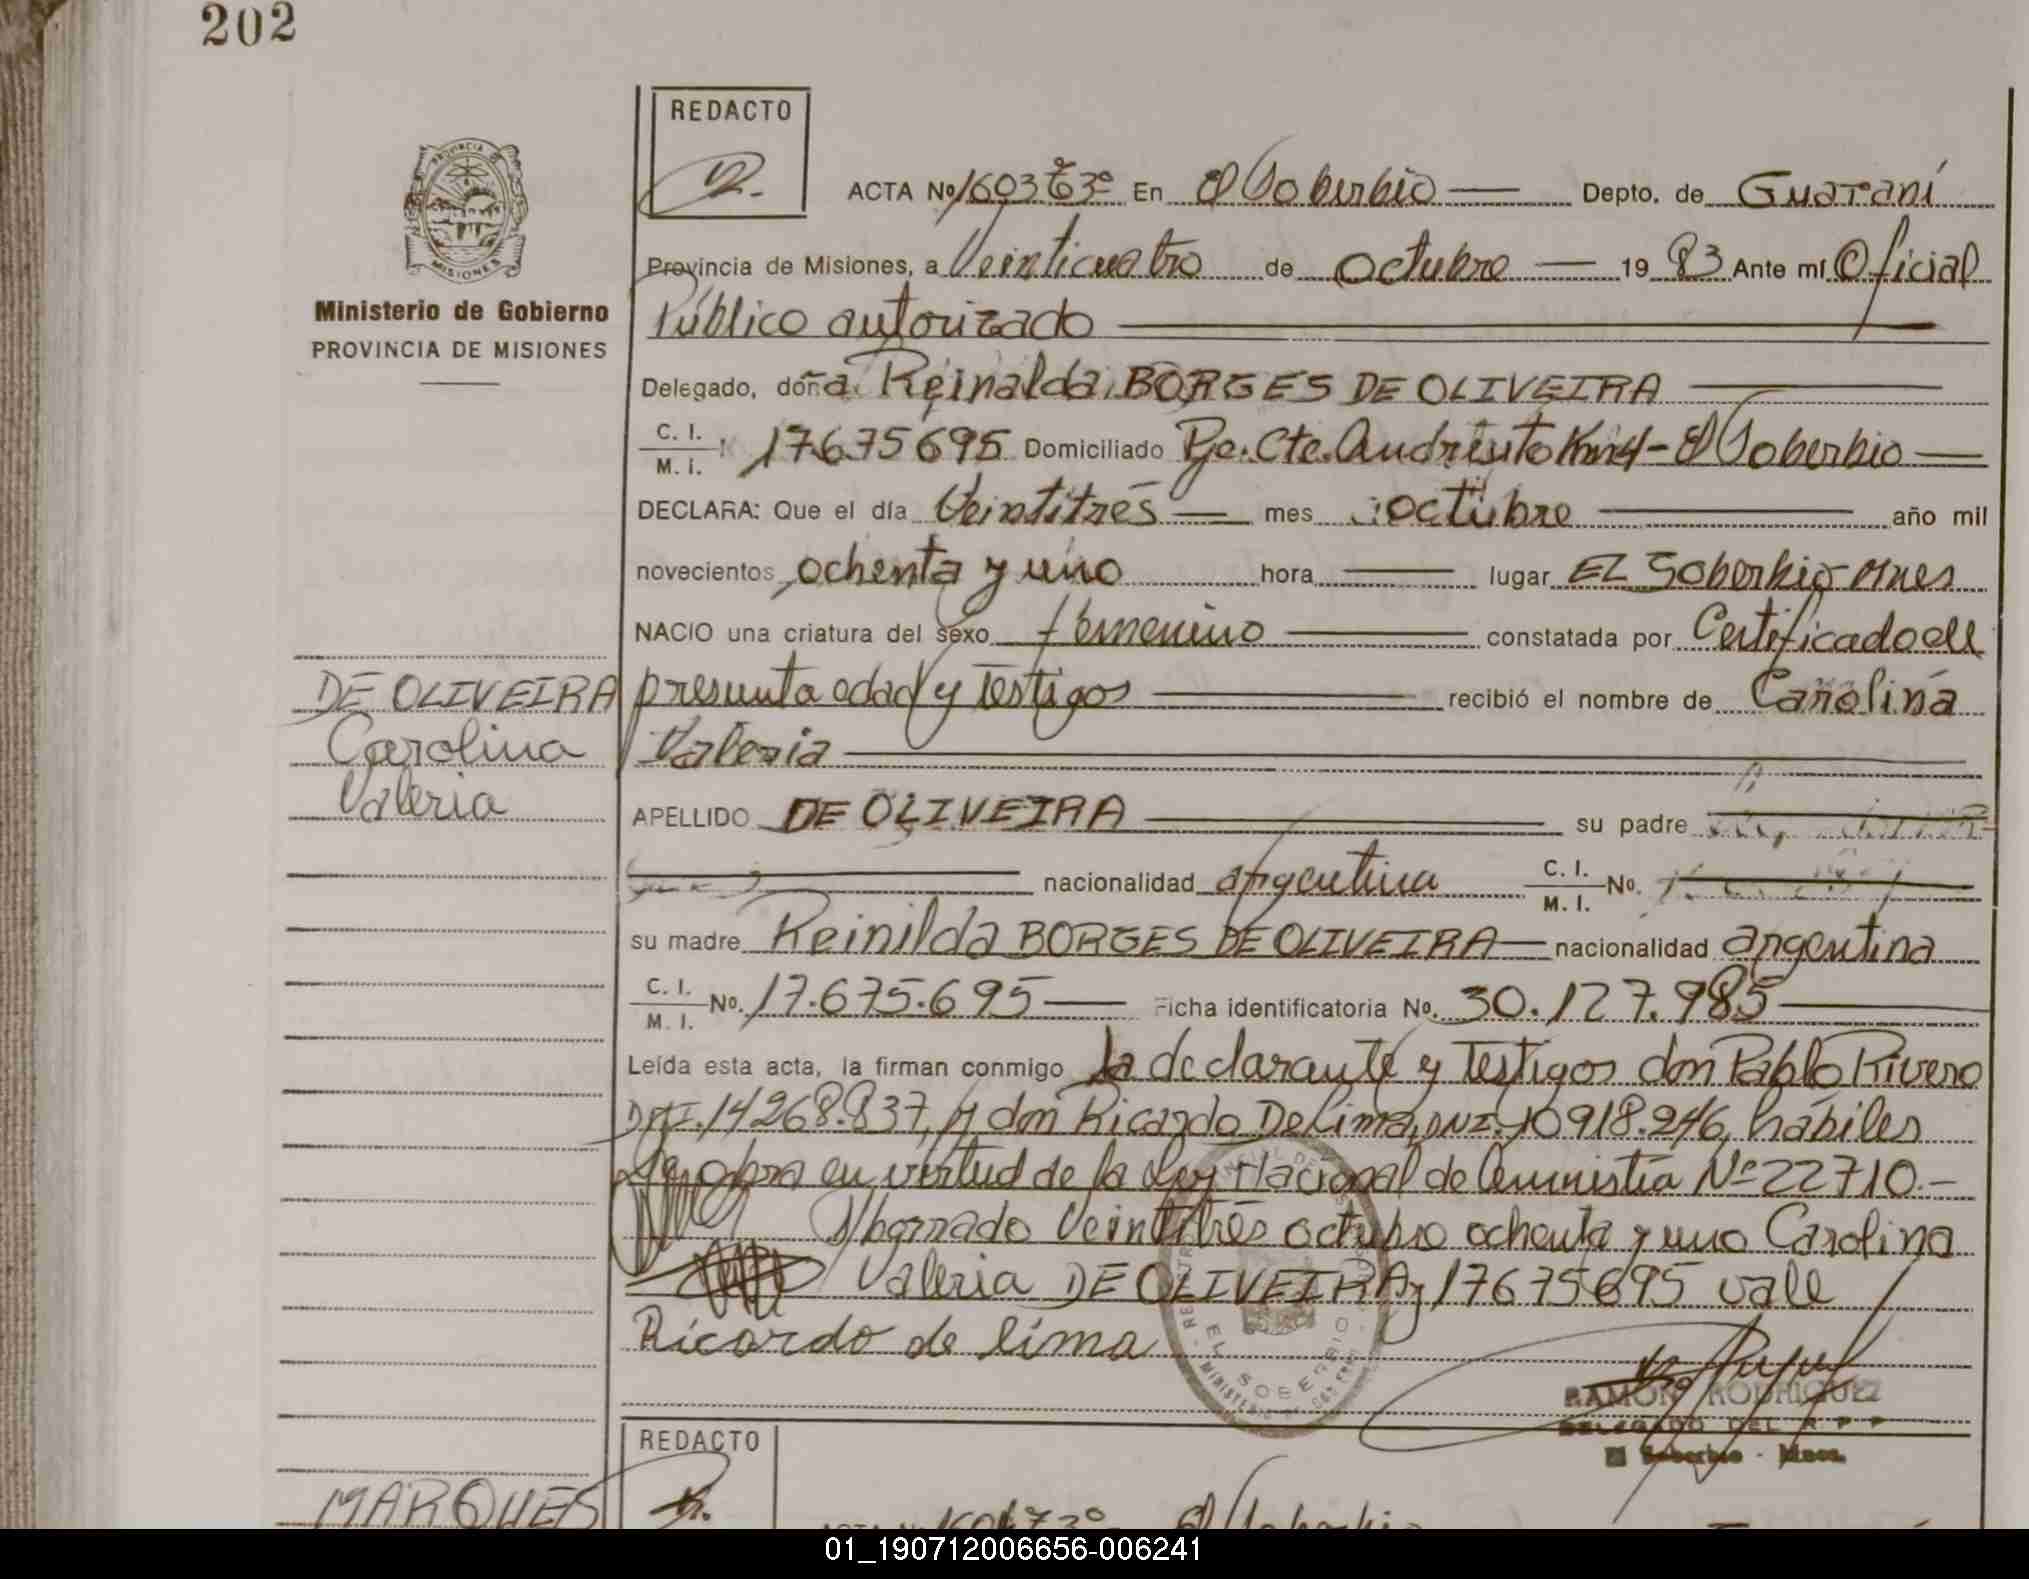 202
REDACTO
PROVINCIA DE
MISIONES
Ministerio de Gobierno
PROVINCIA DE MISIONES
ACTA Nº En El Soberbio Depto. de Guaraní
Provincia de Misiones, a Veinticuatro de octubre 19 83 Ante mí Oficial
Público autorizado
Delegado, doña Reinalda BORGES DE OLIVEIRA
C. I.
M. I. 17675695 Domiciliado Pje. Cte. Andresito Km4 - El Soberbio
DECLARA: Que el día Veintitrés mes octubre año mil
novecientos ochenta y uno hora lugar EL Soberbio Mnes
NACIO una criatura del sexo femenino constatada por Certificado de
presunta edad y Testigos recibió el nombre de Carolina
Valeria
DE OLIVEIRA
Carolina
Valeria
APELLIDO DE OLIVEIRA su padre
nacionalidad argentina C. I. M. I. No.
su madre Reinilda BORGES DE OLIVEIRA nacionalidad argentina
C. I. M. I. No. 17.675.695 Ficha identificatoria No. 30.127.985
Leída esta acta, la firman conmigo la declarante y Testigos don Pablo Rivero
DNI. 14268.837, y don Ricardo De Lima, DNI. 10918.246, hábiles
obra en virtud de la Ley Nacional de Amnistía Nº 22710.-
Veintitrés octubre ochenta y uno Carolina
Valeria DE OLIVEIRA, 17675695 vale
Ricardo de lima
EL SOBERBIO
RAMON RODRIGUEZ
DELEGADO DEL R P P
El Soberbio - Mnes.
REDACTO
MARQUES
01_190712006656-006241